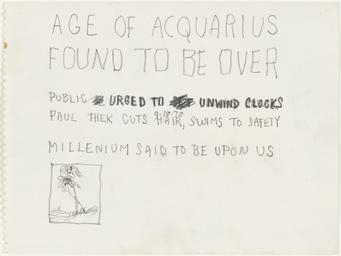 AGE OF ACQUARIUS
FOUND TO BE OVER
PUBLIC URGED TO UNWIND CLOCKS
PAUL THEK CUTS HAIR, SWIMS TO SAFETY
MILLENIUM SAID TO BE UPON US